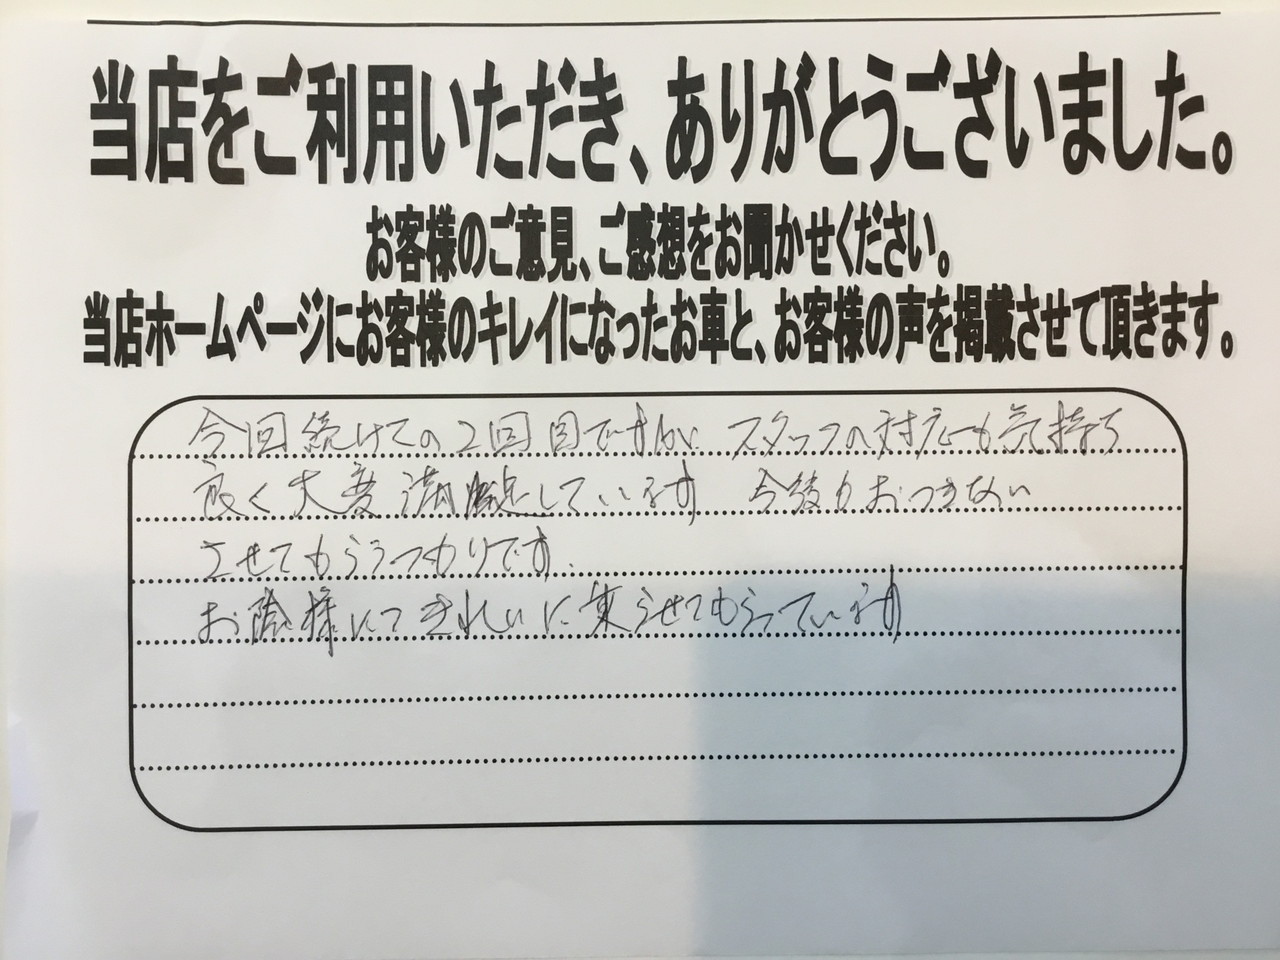 当店をご利用いただき、ありがとうございました。
お客様のご意見、ご感想をお聞かせください。
当店ホームページにお客様のキレイになったお車と、お客様の声を掲載させて頂きます。
今回続けての2回目ですが、スタッフの対応も気持ち
良く大変満足しています 今後もおつきあい
させてもらうつもりです.
お陰様にてきれいに乗らせてもらっています